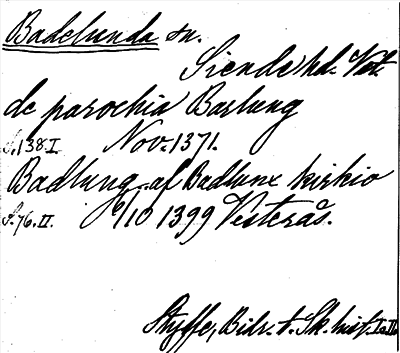 Badelunda sn.
Siende hd. Vstm.
de parochia Barlung
S. 138. I. Nov. 1371.
Badlung, af Badlunx kirkio
S. 76. II. 6/10 1399 Vesterås.
Styffe, Bidr. t. Sk. hist. I. II.